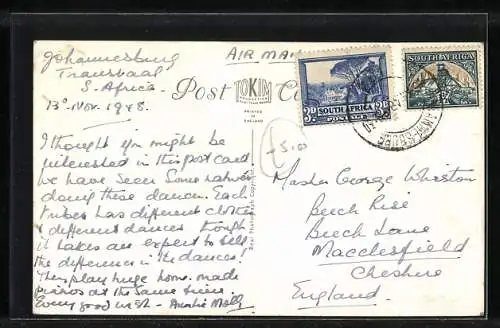 Johannesburg
Transvaal
S. Africa.
13th Nov. 1948.
AIR MAIL
Post Ca
TOKIM
PRINTED IN
ENGLAND
3D. SOUTH AFRICA 3D.
POSTAGE
SOUTH AFRICA
I thought you might be
interested in this post card
we have seen some natives
doing these dances. Each
tribes has different clothes
& different dances though
it takes an expert to tell
the difference in the dances!
They play huge home made
pianos at the same time.
Every good wish - Auntie Molly
Real Photograph Copyright
5.00
Master George Wharton
Beech Rise
Beech Lane
Macclesfield
Cheshire
England.